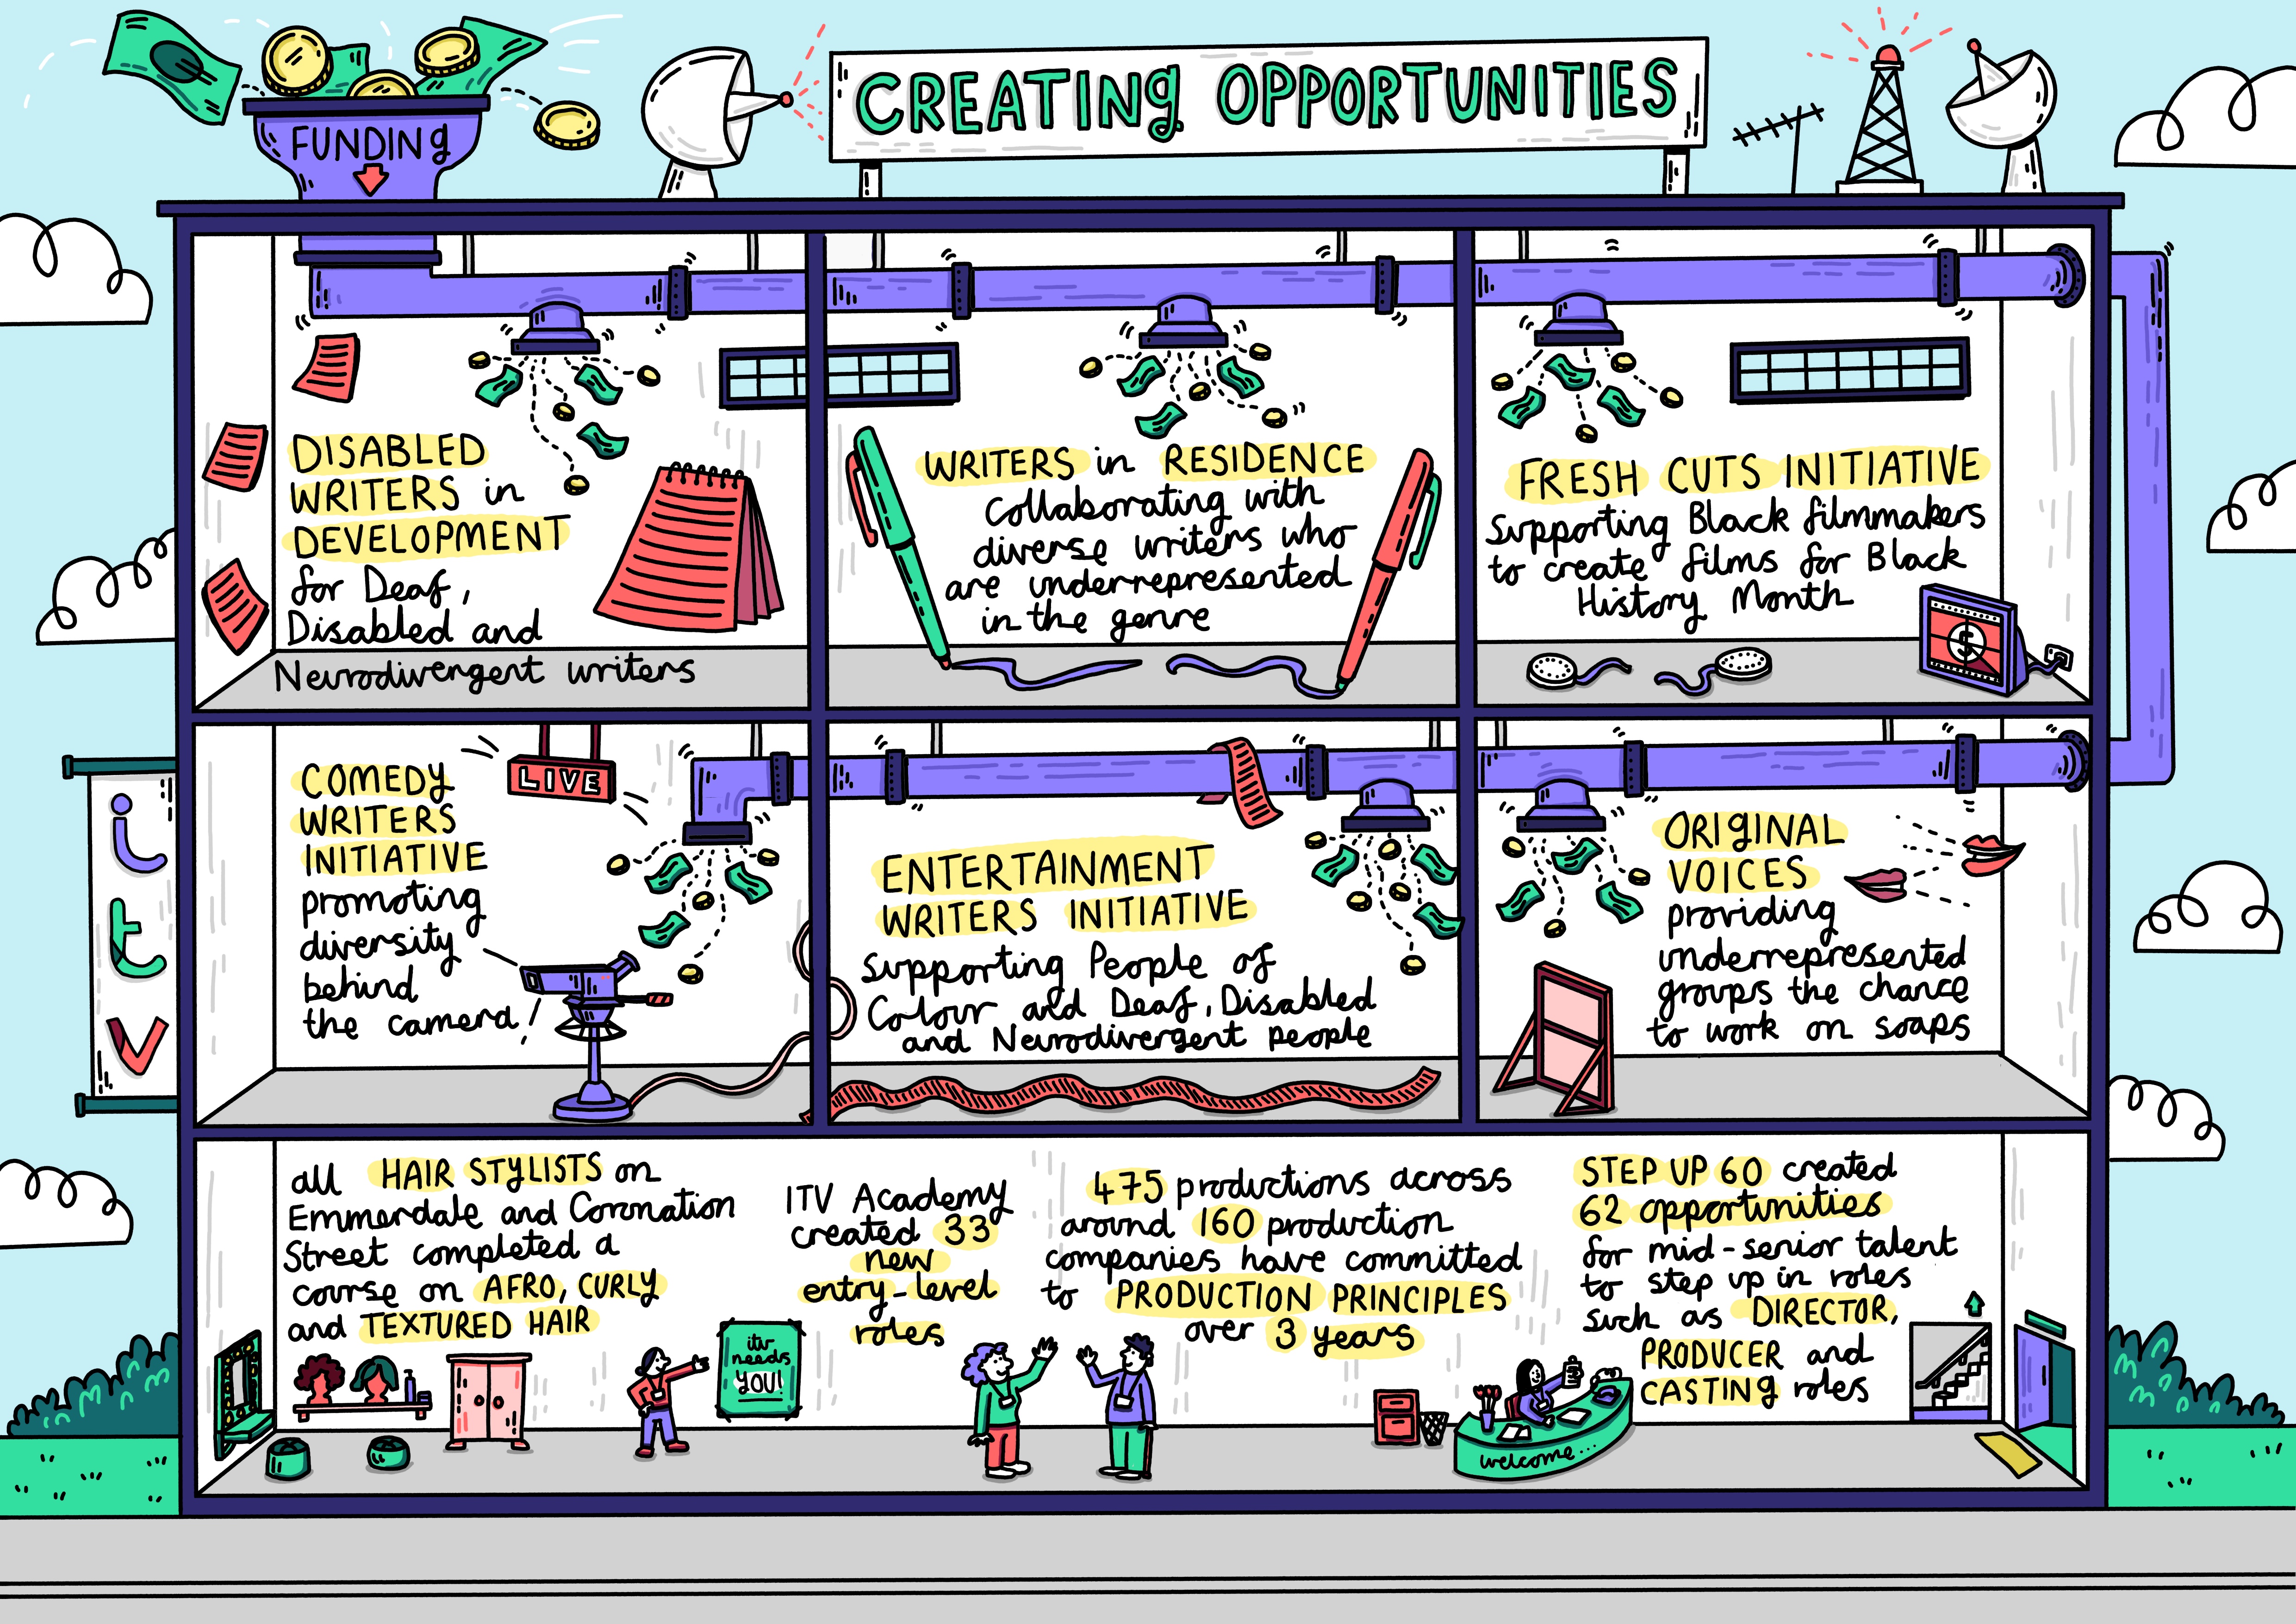 FUNDING
CREATING OPPORTUNITIES
DISABLED
WRITERS in
DEVELOPMENT
for Deaf,
Disabled and
Neurodivergent writers
WRITERS in RESIDENCE
Collaborating with
diverse writers who
are underrepresented
in the genre
FRESH CUTS INITIATIVE
supporting Black filmmakers
to create films for Black
History Month
5
COMEDY
WRITERS
INITIATIVE
promoting
diversity
behind
the camera
LIVE
ENTERTAINMENT
WRITERS INITIATIVE
supporting People of
Colour and Deaf, Disabled
and Neurodivergent people
ORIGINAL
VOICES
providing
underrepresented
groups the chance
to work on soaps
i
t
v
all HAIR STYLISTS on
Emmerdale and Coronation
Street completed a
course on AFRO, CURLY
and TEXTURED HAIR
ITV Academy
created 33
new
entry-level
roles
itv
needs
YOU!
475 productions across
around 160 production
companies have committed
to PRODUCTION PRINCIPLES
over 3 years
STEP UP 60 created
62 opportunities
for mid-senior talent
to step up in roles
such as DIRECTOR,
PRODUCER and
CASTING roles
welcome...